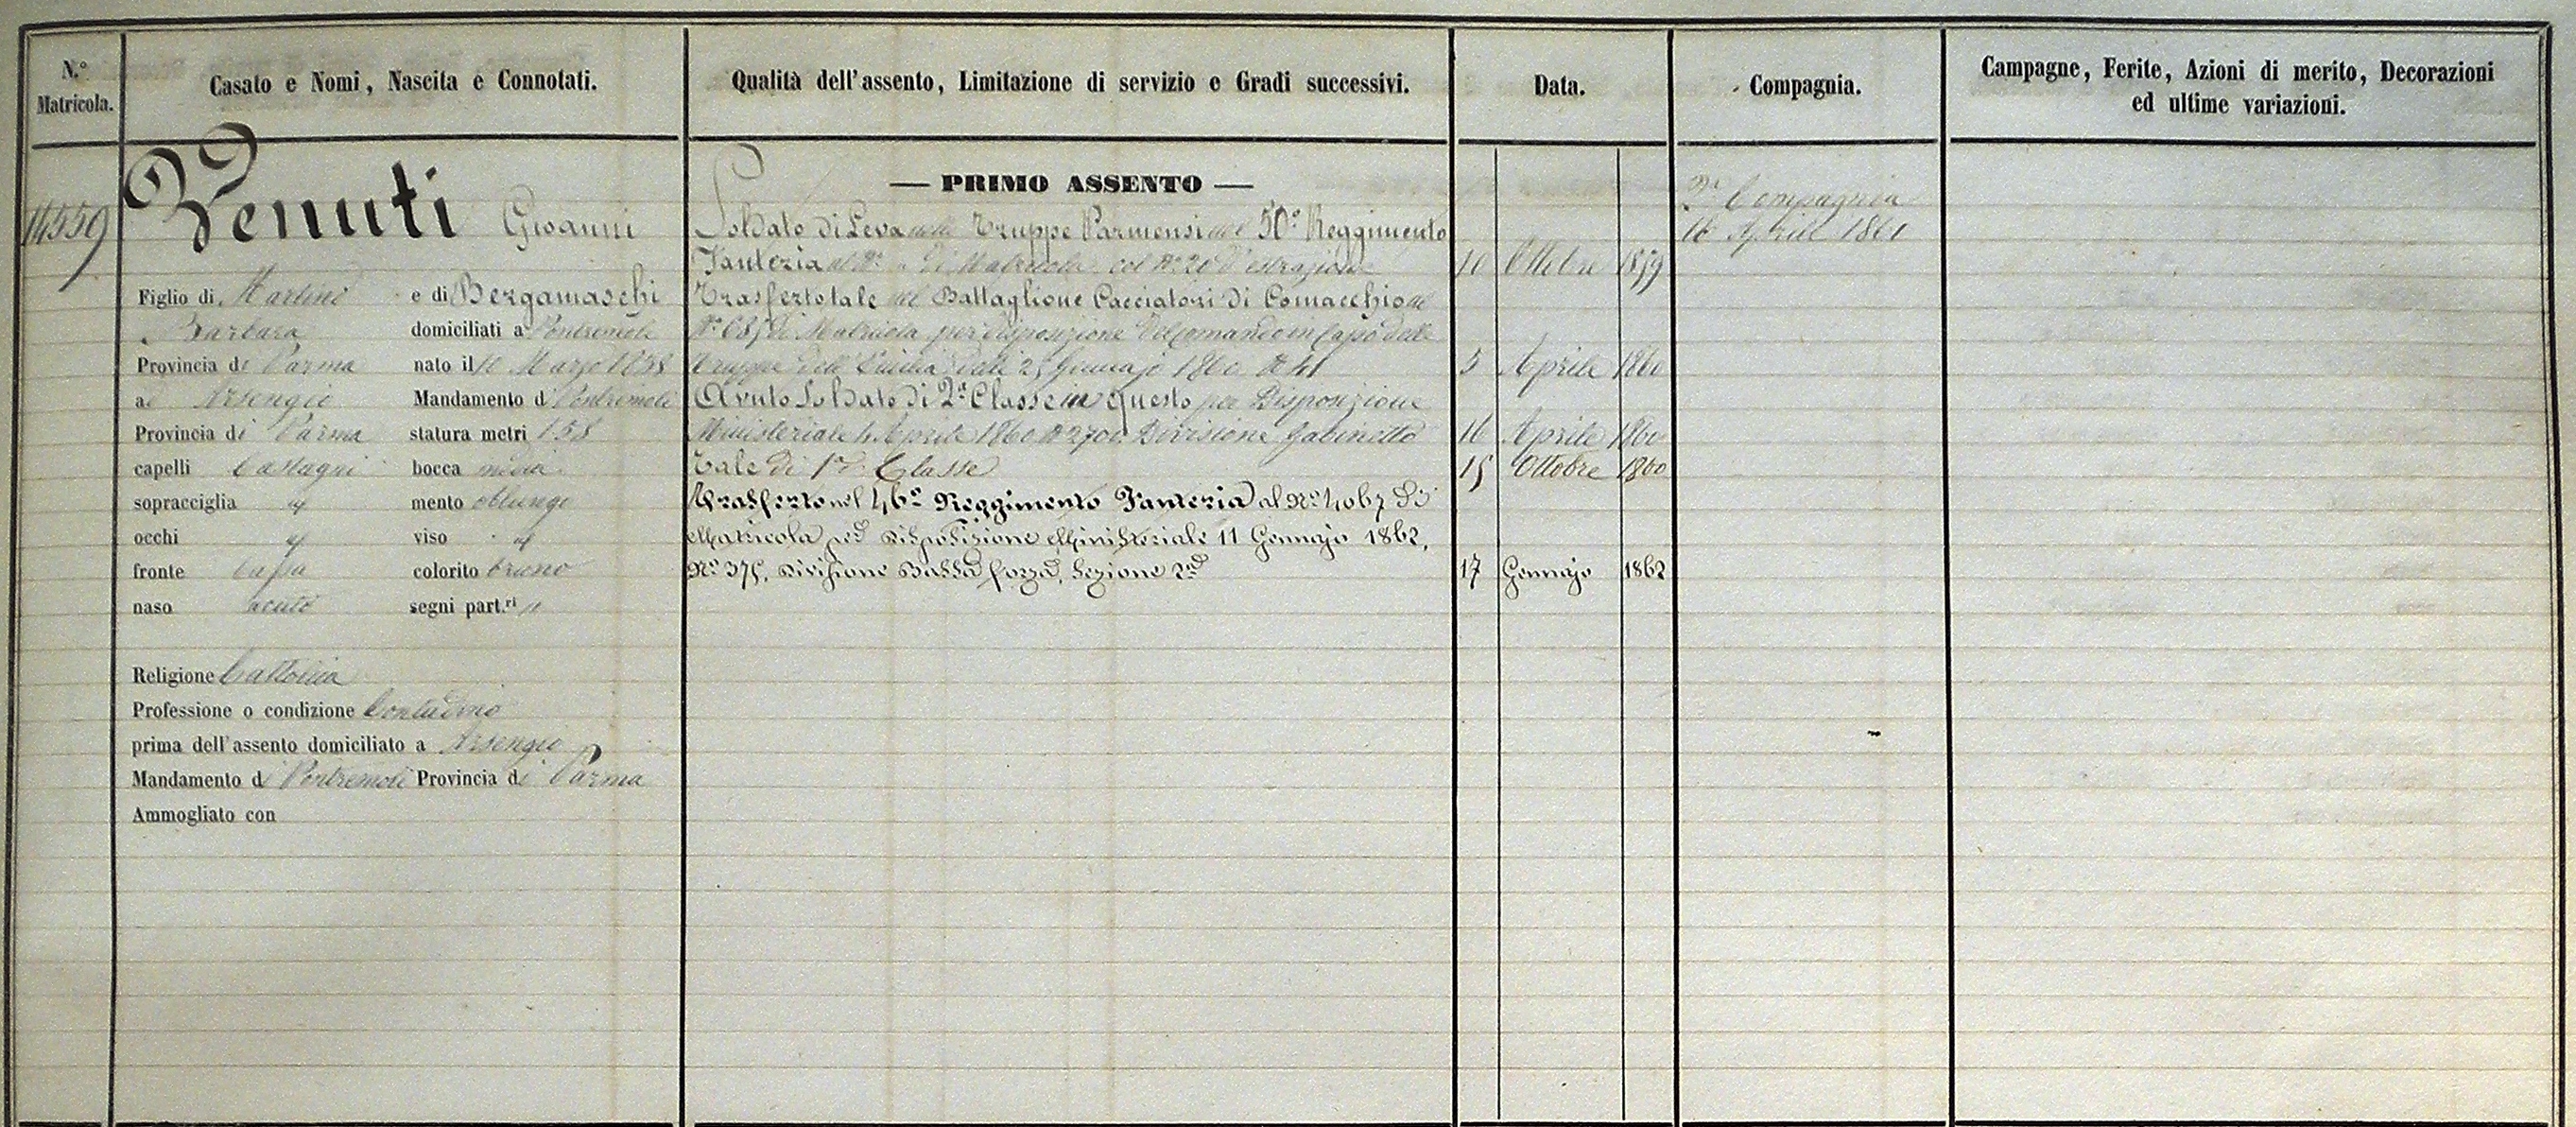 N.° Matricola.
Casato e Nomi, Nascita e Connotati.
Qualità dell'assento, Limitazione di servizio e Gradi successivi.
Data.
Compagnia.
Campagne, Ferite, Azioni di merito, Decorazioni
ed ultime variazioni.
14559
Venuti Gioanni
Figlio di Martino e di Bergamaschi
Barbara domiciliati a Pontremoli
Provincia di Parma nato il Marzo 1838
ad Arsengio Mandamento di Pontremoli
Provincia di Parma statura metri 1.58
capelli Castagni bocca media
sopracciglia id mento oblungo
occhi id viso id
fronte bassa colorito bruno
naso acuto segni part.ri "
Religione Cattolica
Professione o condizione Contadino
prima dell'assento domiciliato a Arsengio
Mandamento di Pontremoli Provincia di Parma
Ammogliato con
— PRIMO ASSENTO —
Soldato di Leva nelle Truppe Parmensi nel 50° Reggimento
Fanteria al N.° " di Matricola col N.° 20 d'estrazione 10 Ottobre 1859
Trasferto tale nel Battaglione Cacciatori di Comacchio al
N.° 685 di Matricola per disposizione del Comando in Capo delle
Truppe dell'Emilia delli 25 Gennajo 1860 N. 41 5 Aprile 1860
Avuto Soldato di 2ª Classe in questo per Disposizione
Ministeriale 4 Aprile 1860 N. 2700 Divisione Gabinetto 16 Aprile 1860
Tale di 1ª Classe 15 Ottobre 1860
Trasferto nel 46° Reggimento Fanteria al N.° 4067 di
Matricola per disposizione Ministeriale 11 Gennajo 1862,
N.° 375, Divisione Bassa forza, Sezione 2ª 17 Gennajo 1862
Compagnia
16 Aprile 1860